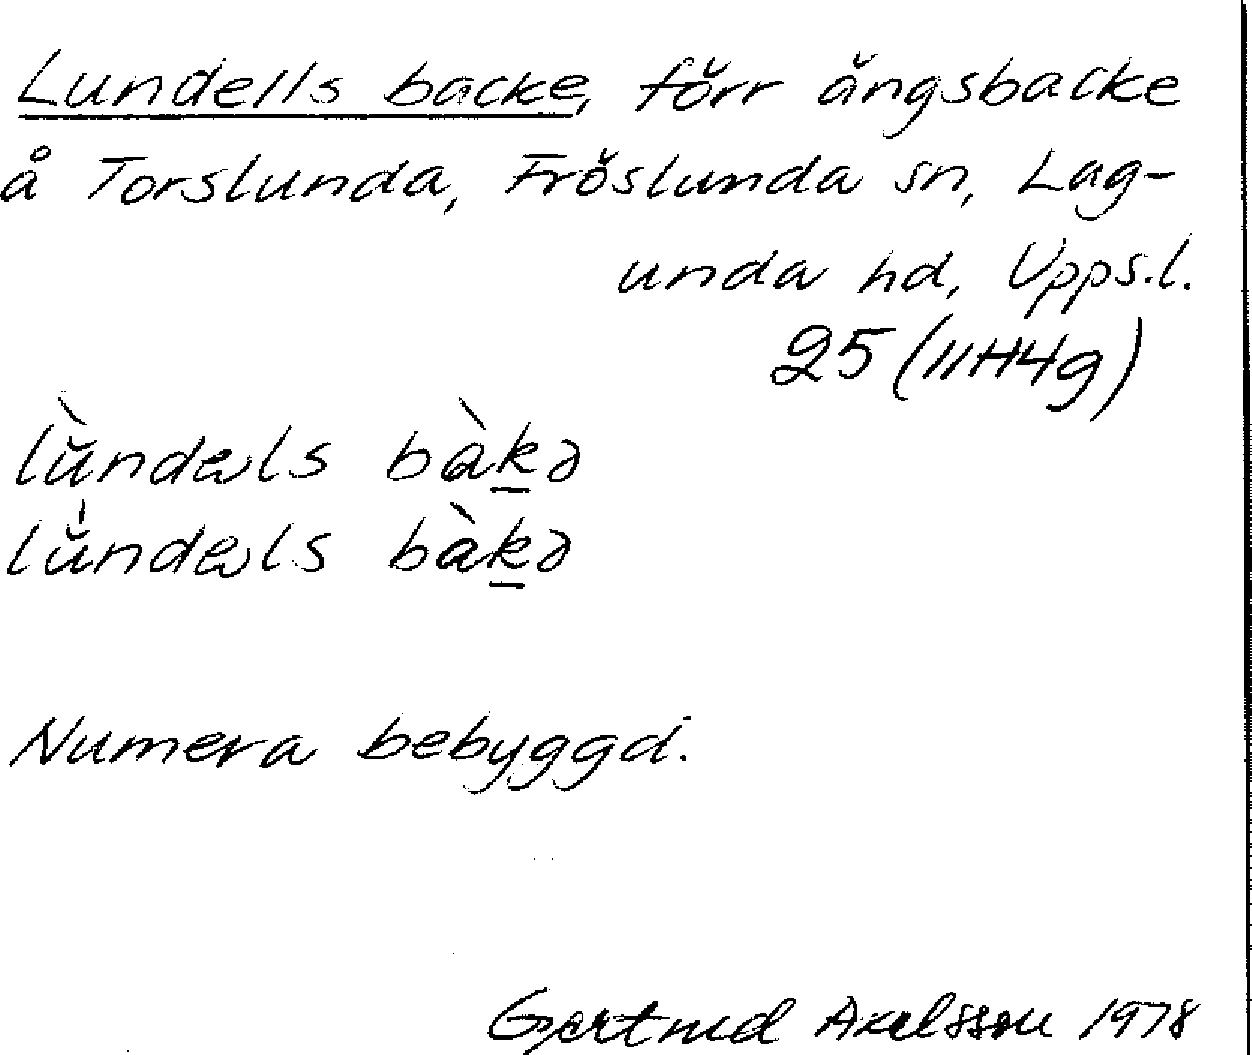 Lundells backe, förr ängsbacke
å Torslunda, Fröslunda sn, Lag-
unda hd, Upps.l.
25 (11H4g)
lùndæls bàk̲ə
lúndæls bàk̲ə
Numera bebyggd.
Gertrud Axelsson 1978